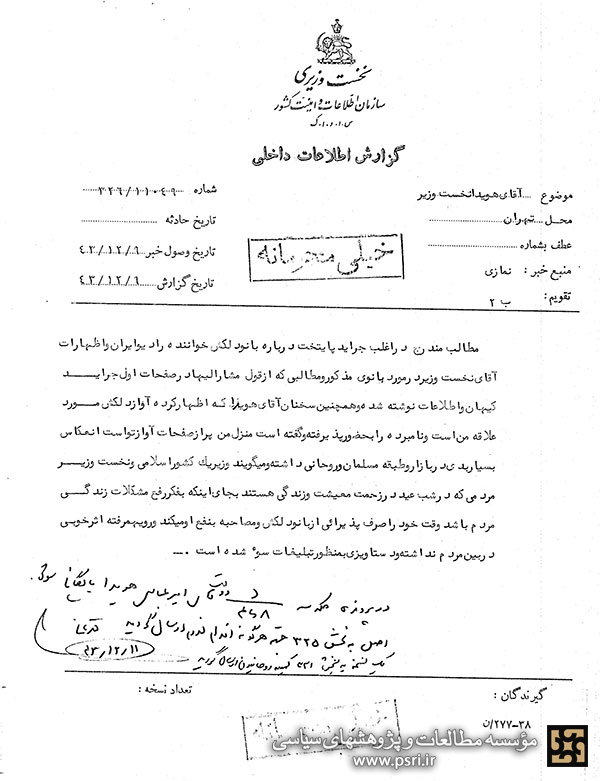 نخست وزیری
سازمان اطلاعات و امنیت کشور
س.ا.و.ا.ک
گزارش اطلاعات داخلی
موضوع ....آقای هویدا نخست وزیر
شماره ۳۲۶/۱۱۰۴۹
محل ....تهران
تاریخ حادثه
عطف بشماره
تاریخ وصول خبر ۴۳/۱۲/۹
خیلی محرمانه
منبع خبر : نمازی
تاریخ گزارش ۴۳/۱۲/۹
تقویم : ب ۲
مطالب مندرج در اغلب جراید پایتخت درباره بانو دلکش خواننده رادیو ایران و اظهارات
آقای نخست وزیر در مورد بانوی مذکور و مطالبی که از قول مشارالیها در صفحات اول جراید
کیهان و اطلاعات نوشته شده و همچنین سخنان آقای هویدا که اظهار کرده آواز دلکش مورد
علاقه من است و نامبرده را بحضور پذیرفته و گفته است منزل من پر از صفحات آواز تو است انعکاس
بسیار بدی در بازار و طبقه مسلمان و روحانی داشته و میگویند وزیر یک کشور اسلامی و نخست وزیر
مردمی که در شب عید در زحمت معیشت و زندگی هستند بجای اینکه بفکر رفع مشکلات زندگی
مردم باشد وقت خود را صرف پذیرائی از بانو دلکش و مصاحبه بنفع او میکند و رویهمرفته اثر خوبی
در بین مردم نداشته و دستاویزی بمنظور تبلیغات سوء شده است .—
در پرونده امیرعباس هویدا بایگانی
اصل به بخش ۳۲۵ هرگونه اقدام ارسال گردید
۴۳/۱۲/۱۱
یک نسخه به بخش ۳۲۱ روحانیون ارسال گردید
گیرندگان :
تعداد نسخه :
۳۸-۲۷۷/ن
مؤسسه مطالعات و پژوهشهای سیاسی
www.psri.ir